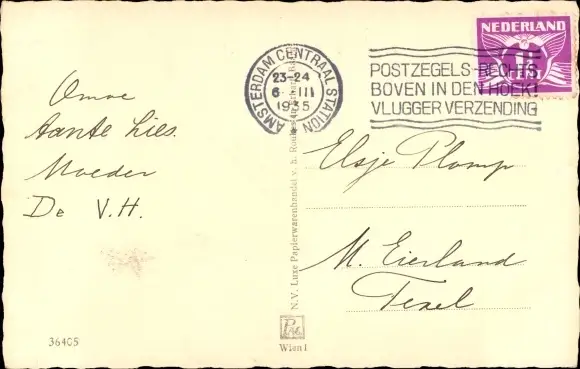 Tante Lies.
Moeder
De V.H.
36405
AMSTERDAM CENTRAAL STATION
23-24
6 III
1935
POSTZEGELS-RECHTS
BOVEN IN DEN HOEK!
VLUGGER VERZENDING
NEDERLAND
CENT
Elsje Plomp
M. Eierland
Texel
N.V. Luxe Papierwarenhandel v. h.
Wien I